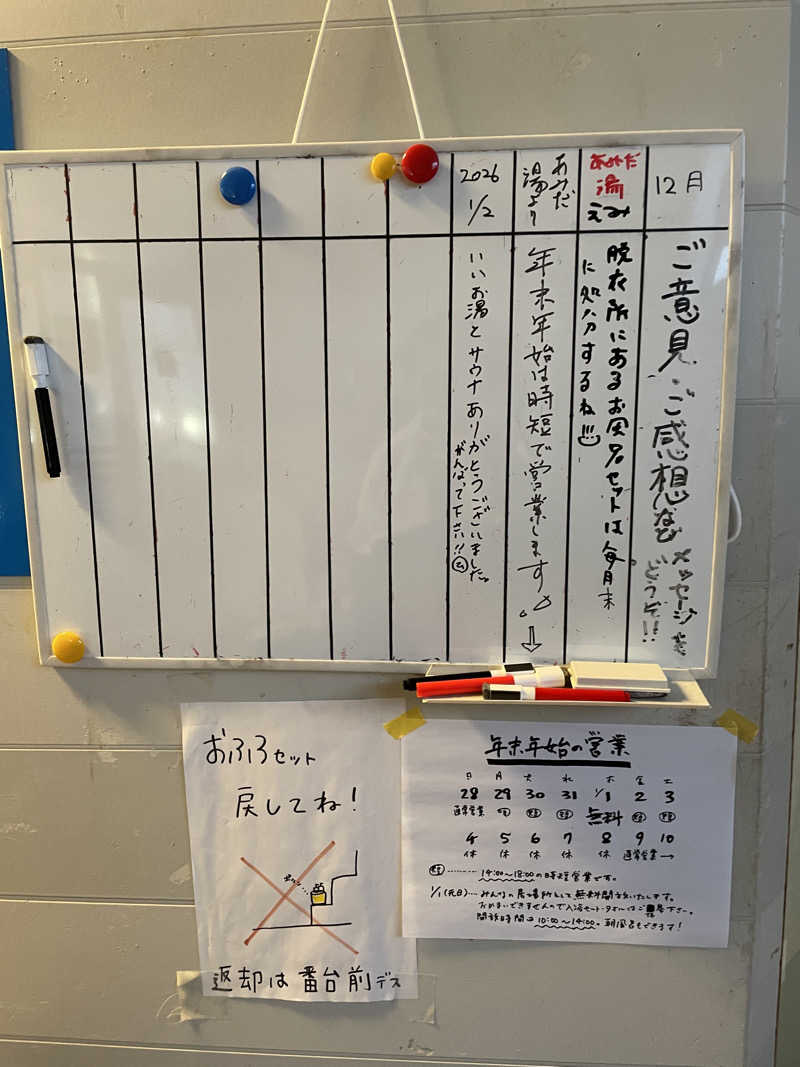 12月
ご意見、ご感想など メッセージを
どうぞ!!
あみだ
湯
えみ
脱衣所にあるお風呂セットは毎月末
に処分するね!!!
あみだ
湯より
年末年始は時短で営業します
2026
1/2
いいお湯とサウナありがとうございました。
がんばって下さい!!
おふろセット
戻してね!
返却は番台前デス
年末年始の営業
日 月 火 水 木 金 土
28 29 30 31 1/1 2 3
通常営業 短 短 短 無料 短 短
4 5 6 7 8 9 10
休 休 休 休 休 通常営業→
短 …… 14:00〜18:00の時短営業です。
1/1(元日)… みんなの居場所として無料開放いたします。
おかまいできませんので入浴セット・タオルはご持参下さい。
開放時間→10:00〜14:00。朝風呂もできます!